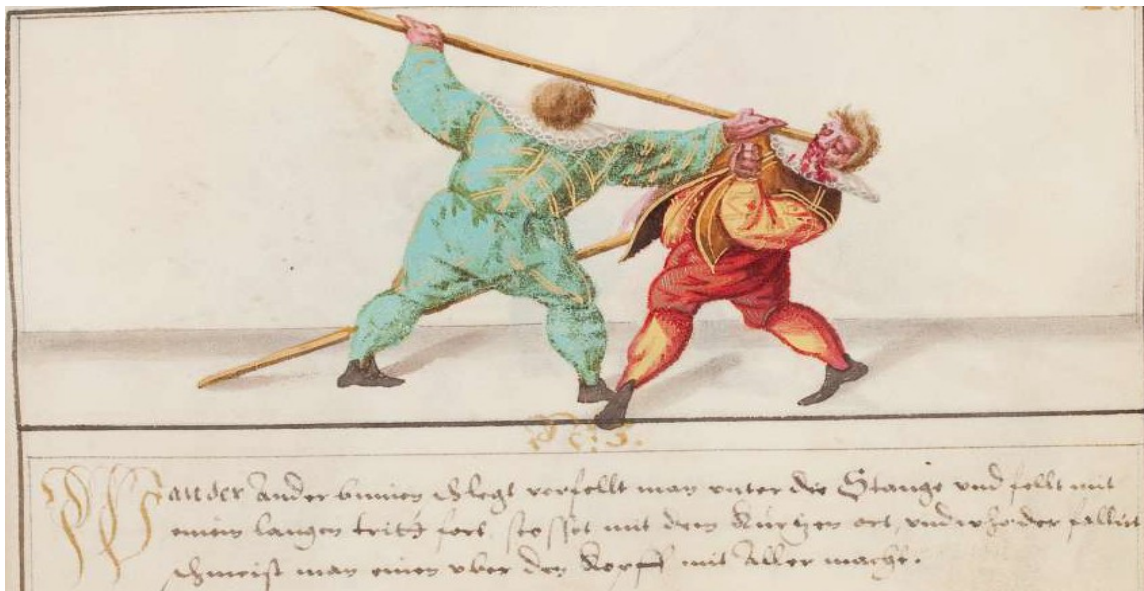 No: 3.
Wan der Ander binnen schlegt verfellt man unter die Stange und fellt mit
einen langen tritt fort, stosset mit dem Kurtzen ort, und der fallirt
schmeist man einen uber den Kopff mit Aller macht.